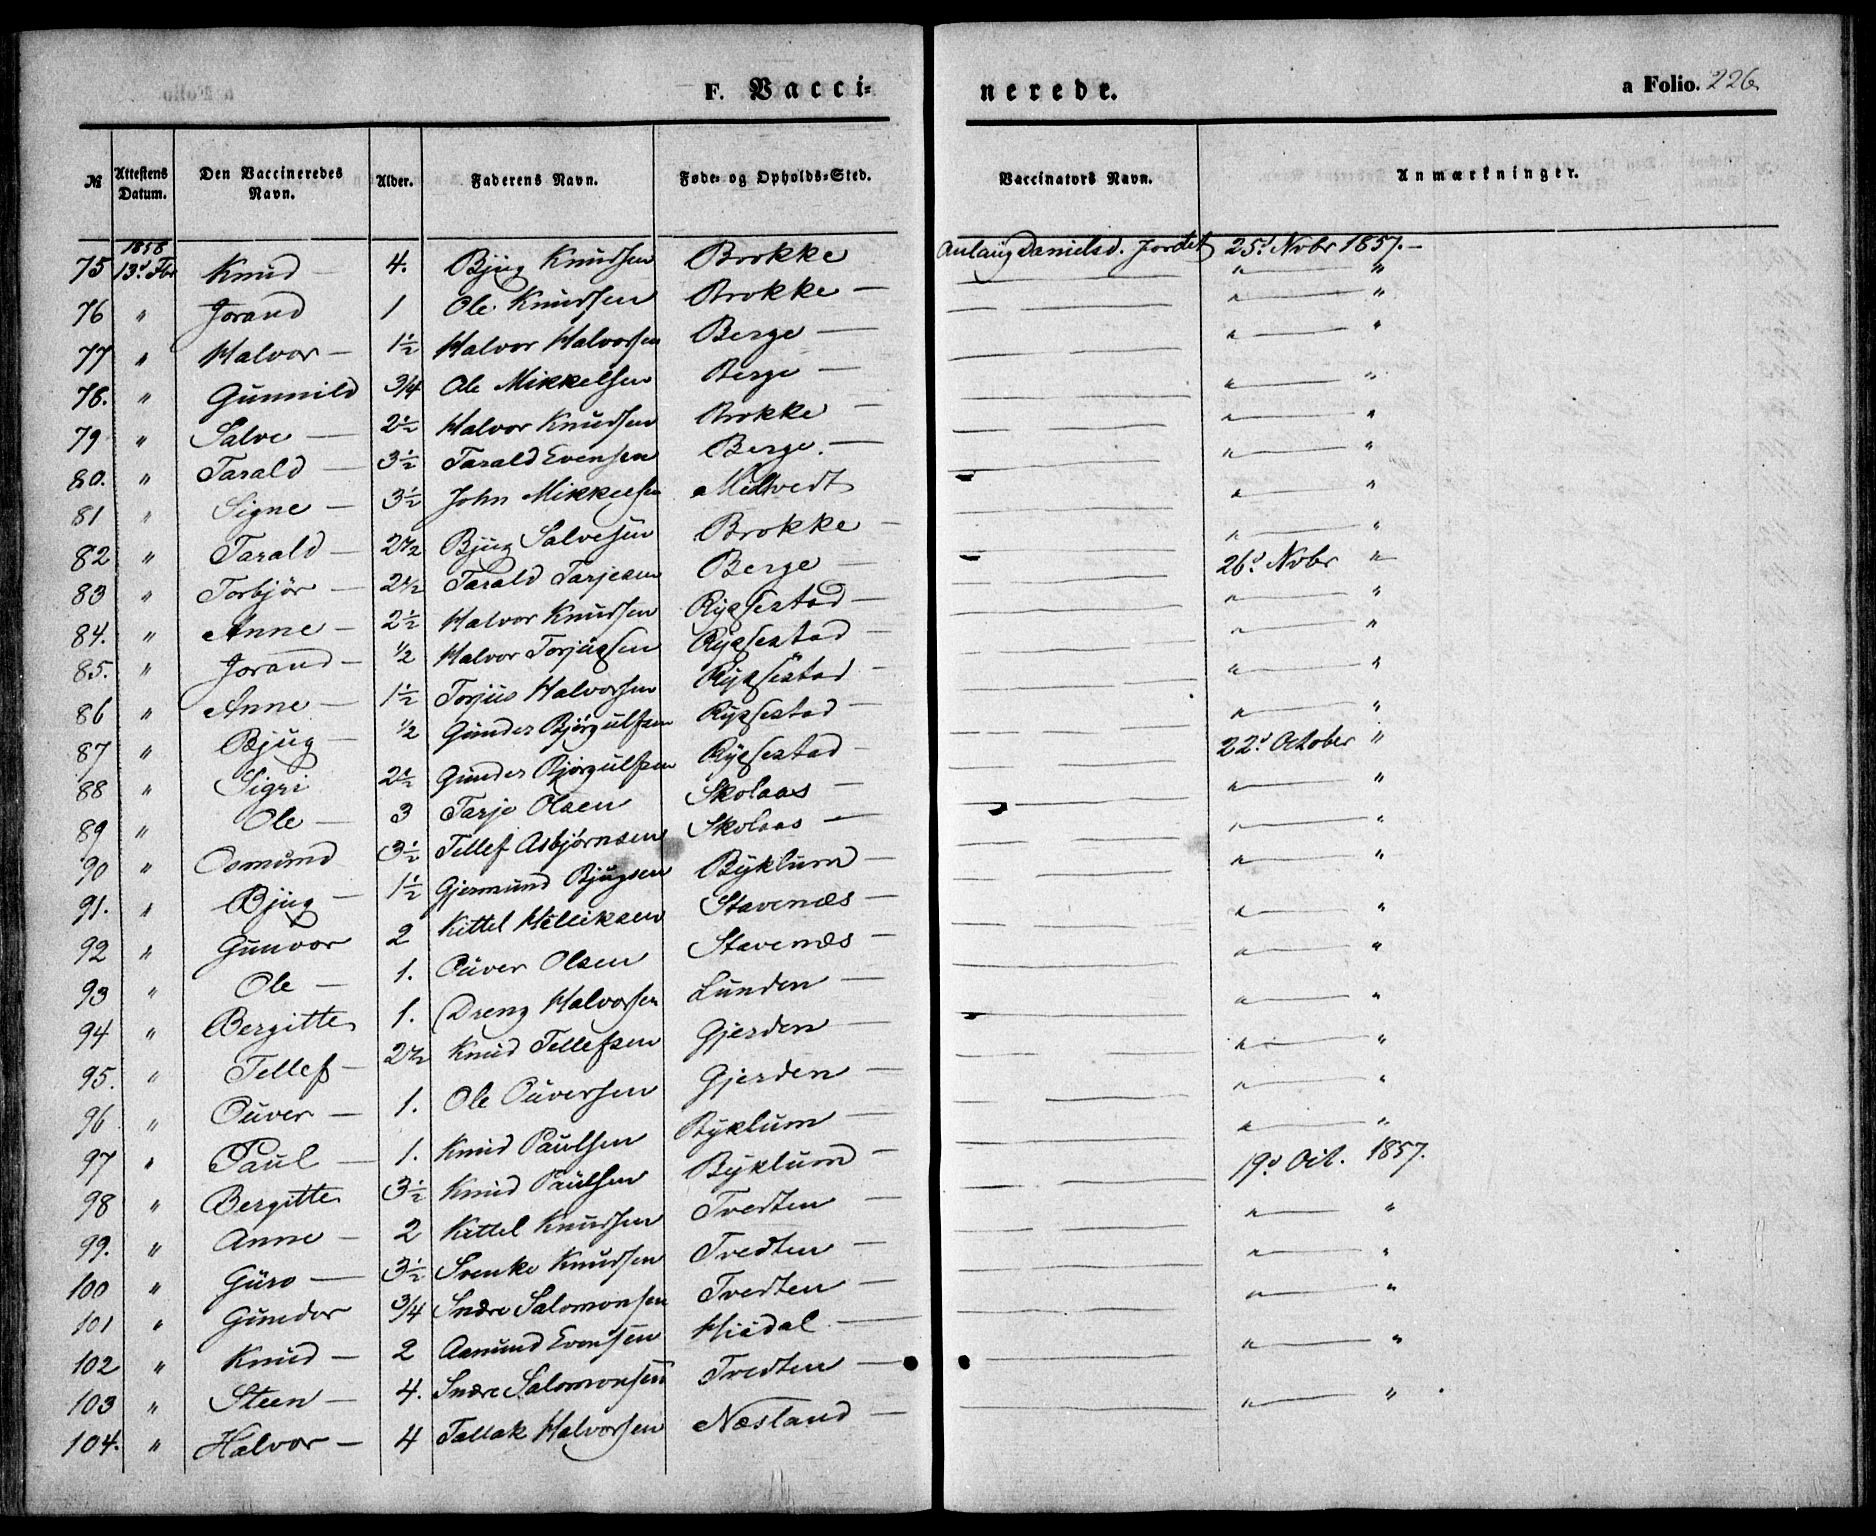 F. Vacci-
nerede.
a Folio. 226
№ Attestens Datum. Den Vaccineredes Navn. Alder. Faderens Navn. Føde- og Opholds-Sted. Vaccinators Navn. Anmærkninger.
1858
75 13d Fbr Knud — 4. Bjug Knudsen Brokke Aulaug Danielsd. Jordet 25d Novbr 1857. —
76 " Jorand 1 Ole Knudsen Brokke — " — "
77 " Halvor — 1½ Halvor Halvorsen Berge — " — "
78. " Gunnild 3/4 Ole Mikkelsen Berge — " — "
79 " Salve — 2½ Halvor Knudsen Brokke — " — "
80. " Tarald — 3½ Tarald Evensen Berge. — " — "
81 " Signe — 3½ John Mikkelsen Meltvedt " — "
82 " Tarald — 2½ Bjug Salvesen Brokke — " — "
83 " Torbjør — 2½ Tarald Tarjesen Berge — 26d Novbr "
84. " Anne — 2½ Halvor Knudsen Rygsestad — " — "
85. " Jorand — ½ Halvor Torjugsen Rygsestad — " — "
86 " Anne — 1½ Torjus Halvorsen Rygsestad — " — "
87 " Bjug — ½ Gunder Bjørgulfsen Rygsestad — " — "
88 " Sigri 2½ Gunder Bjørgulfsen Rygsestad — 22d October "
89 " Ole — 3 Tarje Olsen Skolaas — " — "
90 " Osmund 3½ Tellef Asbjørnsen Skolaas — " — "
91. " Bjug — 1½ Gjermund Bjugsen Byklum — " — "
92 " Gunvor 2 Kittel Helliksen Stavenæs — " — "
93 " Ole — 1. Ouver Olsen Stavenæs — " — "
94 " Bergitte 1. Dreng Halvorsen Lunden — " — "
95. " Tellef — 2½ Knud Tellefsen Gjerden — " — "
96 " Ouver — 1. Ole Ouversen Gjerden — " — "
97 " Paul — 1. Knud Paulsen Byklum — " — "
98 " Bergitte 3½ Knud Paulsen Byklum — 19d Oct. 1857.
99. " Anne — 2 Kittel Knudsen Tvedten — " — "
100 " Guro — 3½ Svenke Knudsen Tvedten — " — "
101 " Gunder 3/4 Snære Salomonsen Tvedten — " — "
102 " Knud — 2 Asmund Evensen — " — "
103 " Steen — 4. Snære Salomonsen Tvedten — " — "
104. " Halvor — 4 Tallak Halvorsen Næsland —